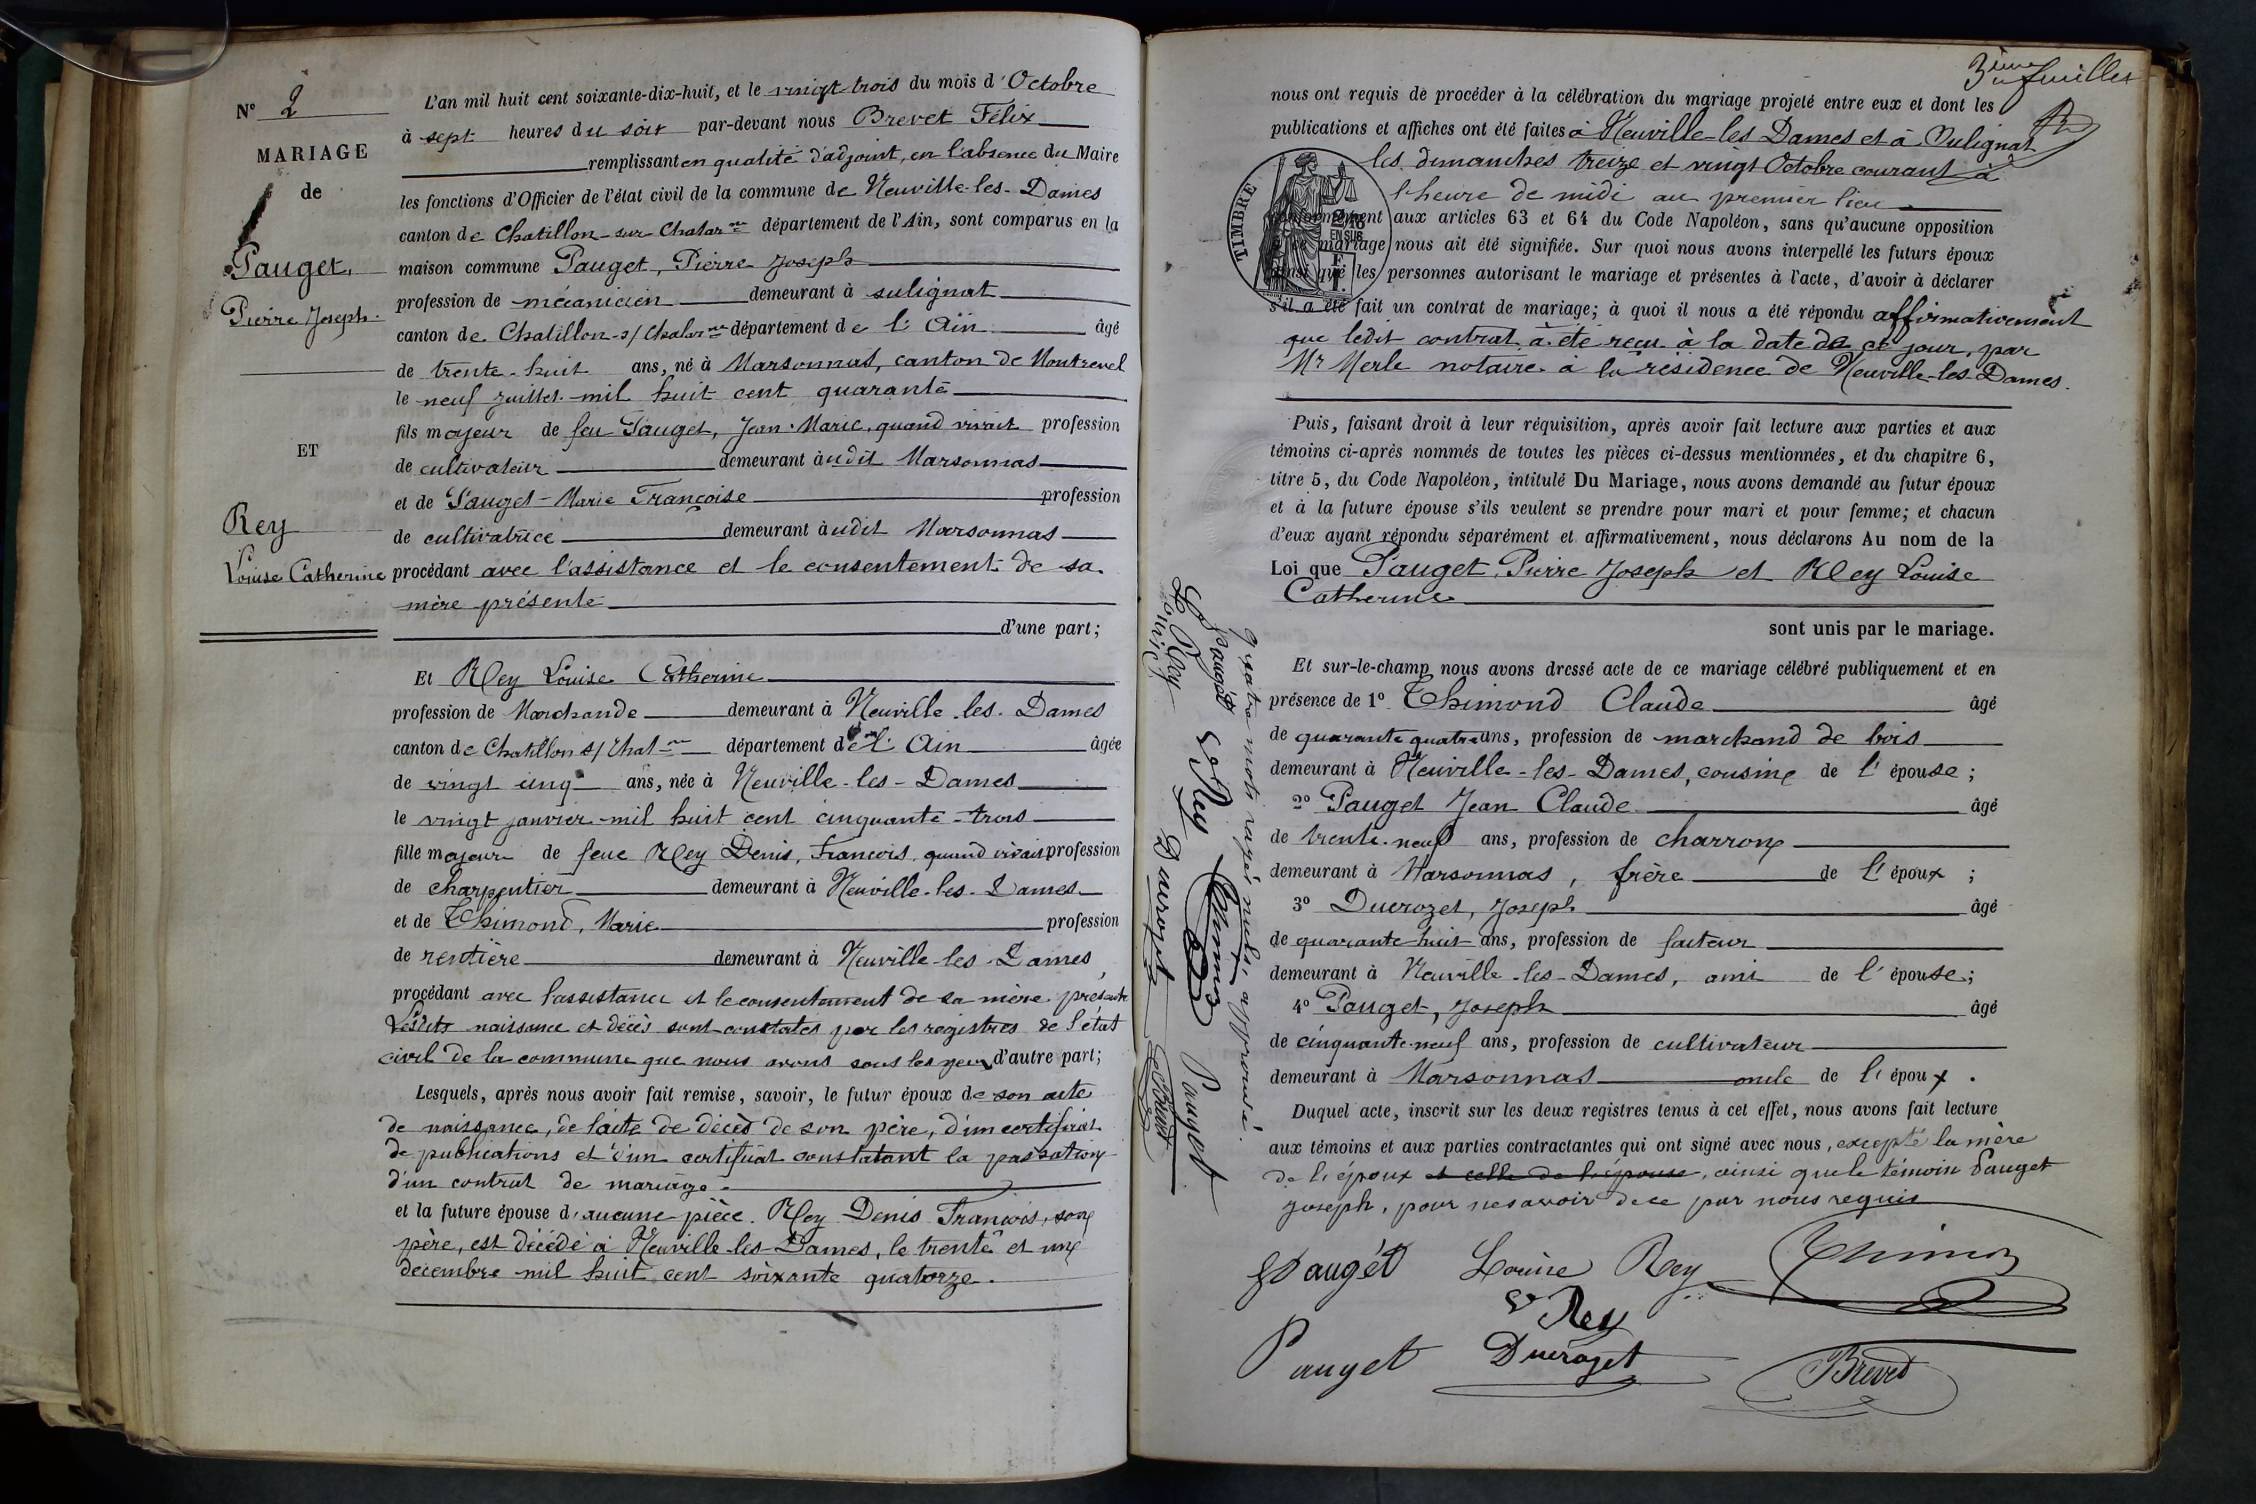 N° 2
MARIAGE
de
Pauget,
Pierre Joseph.
ET
Rey
Louise Catherine
L'an mil huit cent soixante-dix-huit, et le vingt trois du mois d'Octobre
à sept heures du soir par-devant nous Brevet Félix
remplissant en qualité d'adjoint, en l'absence du Maire
les fonctions d'Officier de l'état civil de la commune de Neuville-les-Dames
canton de Chatillon-sur-Chalarne département de l'Ain, sont comparus en la
maison commune Pauget, Pierre Joseph
profession de mécanicien demeurant à sulignat
canton de Chatillon-s/Chalarne département de l'Ain âgé
de trente-huit ans, né à Marsonnas, canton de Montrevel
le neuf juillet mil huit cent quarante
fils majeur de feu Pauget, Jean-Marie, quand vivait profession
de cultivateur demeurant àudit Marsonnas
et de Pauget-Marie Françoise profession
de cultivatrice demeurant àudit Marsonnas
procédant avec l'assistance et le consentement de sa
mère présente
d'une part;
Et Rey Louise Catherine
profession de Marchande demeurant à Neuville-les-Dames
canton de Chatillon s/Chalne département de l'Ain âgée
de vingt cinq ans, née à Neuville-les-Dames
le vingt janvier mil huit cent cinquante-trois
fille majeure de feue Rey Denis, François, quand vivait profession
de charpentier demeurant à Neuville-les-Dames
et de Thimond, Marie profession
de rentière demeurant à Neuville-les-Dames,
procédant avec l'assistance et le consentement de sa mère présente
Lesdits naissance et décès sont constatés par les registres de l'état
civil de la commune que nous avons sous les yeux d'autre part;
Lesquels, après nous avoir fait remise, savoir, le futur époux de son acte
de naissance, de l'acte de décès de son père, d'un certificat
de publications et d'un certificat constatant la passation
d'un contrat de mariage.
et la future épouse d'aucune pièce. Rey Denis François, son
père, est décédé à Neuville-les-Dames, le trente et un
décembre mil huit cent soixante quatorze.
3ième feuillet
nous ont requis de procéder à la célébration du mariage projeté entre eux et dont les
publications et affiches ont été faites à Neuville-les Dames et à Sulignat
les dimanches treize et vingt Octobre courant à
l'heure de midi au premier lieu
TIMBRE
2/10
EN SUS
conformément aux articles 63 et 64 du Code Napoléon, sans qu'aucune opposition
à ce mariage nous ait été signifiée. Sur quoi nous avons interpellé les futurs époux
ainsi que les personnes autorisant le mariage et présentes à l'acte, d'avoir à déclarer
s'il a été fait un contrat de mariage; à quoi il nous a été répondu affirmativement
que ledit contrat a été reçu à la date de ce jour, par
Mr Merle notaire à la résidence de Neuville-les-Dames.
Puis, faisant droit à leur réquisition, après avoir fait lecture aux parties et aux
témoins ci-après nommés de toutes les pièces ci-dessus mentionnées, et du chapitre 6,
titre 5, du Code Napoléon, intitulé Du Mariage, nous avons demandé au futur époux
et à la future épouse s'ils veulent se prendre pour mari et pour femme; et chacun
d'eux ayant répondu séparément et affirmativement, nous déclarons Au nom de la
Loi que Pauget, Pierre Joseph et Rey Louise
Catherine
sont unis par le mariage.
Et sur-le-champ nous avons dressé acte de ce mariage célébré publiquement et en
présence de 1° Thimond Claude âgé
de quarante quatre ans, profession de marchand de bois
demeurant à Neuville-les-Dames, cousin de l'épouse;
2° Pauget Jean Claude âgé
de trente-neuf ans, profession de charron
demeurant à Marsonnas, frère de l'époux;
3° Ducrozet, Joseph âgé
de quarante-huit ans, profession de facteur
demeurant à Neuville-les-Dames, ami de l'épouse;
4° Pauget, Joseph âgé
de cinquante-neuf ans, profession de cultivateur
demeurant à Marsonnas oncle de l'époux.
Duquel acte, inscrit sur les deux registres tenus à cet effet, nous avons fait lecture
aux témoins et aux parties contractantes qui ont signé avec nous, excepté la mère
de l'époux et celle de l'épouse, ainsi que le témoin Pauget
Joseph, pour ne savoir de ce par nous requis
Pauget Louise Rey Thimon
Ve Rey
Pauget Ducrozet Brevet
quatre mots rayés nuls approuvé.
Pauget Ve Rey Thimon Pauget
L. Rey Ducrozet Brevet